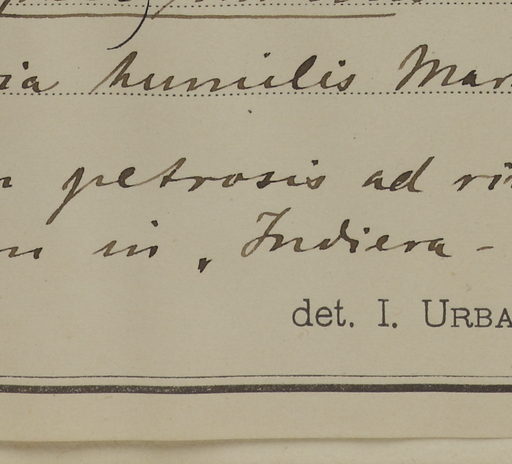 ia humilis Mar
petrosis ad ri
in „ Indiera -
det. I. URBA